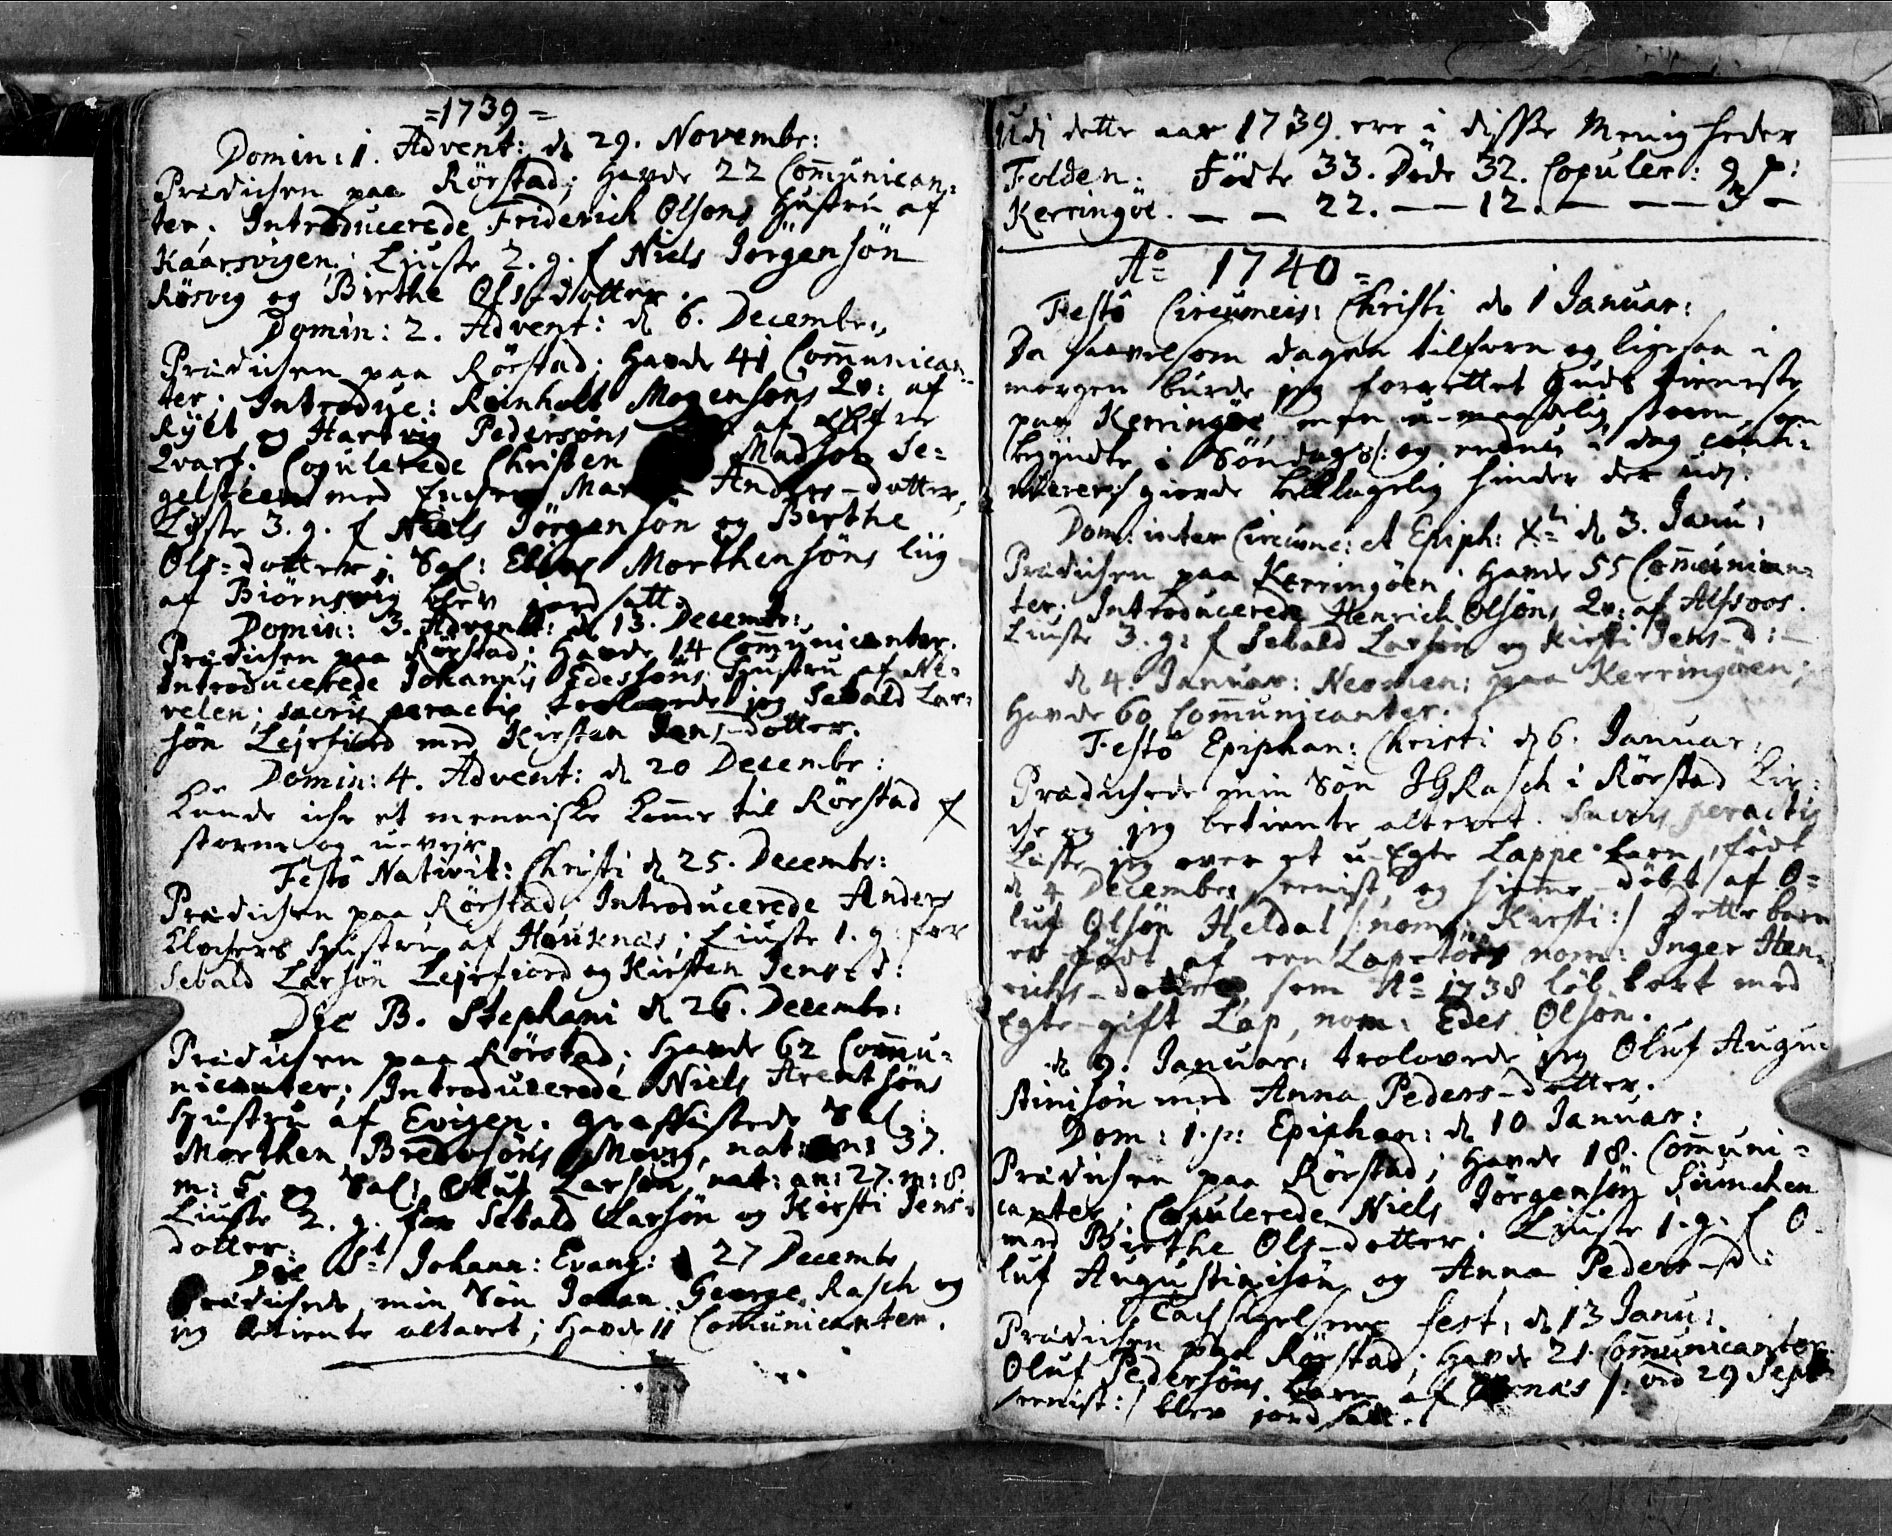 =1739=
Domin: 1. Advent: d 29. Novembr:
Prædichen paa Rörstad; Havde 22 Com̄unican-
ter. Introducerede Friderich Olsöns Hustru af
Kaarsvigen; Liuste 2. g. f Niels Jörgensön
Rösvig og Birthe Olsdotter.
Domin: 2. Advent: d 6. Decembr:
Prædichen paa Rörstad; Havde 41 Com̄unican-
ter. Introduc: Reinholt Mogensöns Qv: af
og Hartvig Pedersöns af
Qvarf. Copulerede Christen Madsön Te=
gelsteen med Anders-dotter,
Liuste 3. g. f Niels Jörgensön og Birthe
Ols-dotter; Sal: Morthensöns liig
af Biörnsvig blev jordsatt.
Domin: 3. Advent: d 13. Decembr:
Prædichen paa Rörstad; Havde 14 Com̄unicanter.
Introducerede Johannis Edessöns Hustru af Ne-
velen; sacris peractis trolovede jeg Sebald Lar-
sön Lejrfiord med Kirsten Jens-dotter.
Domin: 4. Advent: d 20 Decembr:
Kunde iche et menniske kom̄e til Rörstad f
storm og uvejr.
Festo Nativit: Christi d 25. Decembr:
Prædichen paa Rörstad; Introducerede Anders
Klochers Hustru af Hauknæs; Liuste 1. g. for
Sebald Larsön Lejrfiord og Kirsten Jens d:
Die B. Stephani d 26. Decembr:
Prædichen paa Rörstad; Havde 62 Com̄u-
nicanter; Introducerede Niels Arentsöns
Hustru af Evigen. Sal:
Morthen nat: an: 37.
m: 5. og Sal: Oluf Larsön, nat: an: 27. m: 8
Liuste 2. g. for Sebald Larsön og Kirsti Jens-
dotter.
Die St Johann: Evang: d 27 Decembr
Prædichede min Sön Johan George Rasch og
jeg betiente altaret; Havde 11 Com̄unicanter.
Udj dette aar 1739 ere i disse Menigheder
Folden. Födte 33. Döde 32. Copuler: 9 p:
Kerringöe. — — 22. — — 12. — — — 3 —
Ao 1740=
Festo Circumcis: Christi d 1 Januar:
Da saavelsom dagen tilforn og ligesaa i
morgen burde jeg forrettet Guds tieniste
paa Kerringöe, men u-maadelig storm, som
begyndte i Söndags og endnu i dag
giorde beklagelig hinder der udj.
Dom: inter Circumc: et Epiph: Xti d 3. Janu:
Prædichen paa Kerringöen; Havde 55 Com̄unican-
ter. Introducerede Henrich Olsöns Qv: af Alsvos.
Liuste 3. g: f Sebald Larsön og Kirsti Jens-d:
d 4. Januar: paa Kerringöen;
Havde 60 Com̄unicanter.
Festo Epiphan: Christi d 6. Januar:
Prædichede min Sön JGRasch i Rörstad Kir-
che og jeg betiente alteret. Sacris peractis
Liuste jeg over et u-Egte Lappe-barn, födt
d 4 Decembr: og hiemme-döbt af O=
luf Olsön Heldal /: nom: Kirsti :/ Dette barn
er födt af een nom: Inger Hen-
richs-dotter, som Ao 1738 löb bort med
Egte-gift Lap, nom: Edes Olsön.
d 9. Januar: trolovede jeg Oluf Augu-
stinisön med Anna Peders-dotter.
Dom: 1. p: Epiphan: d 10 Januar:
Prædichen paa Rörstad; Havde 18. Com̄uni-
canter; Copulerede Niels Jörgensön
med Birthe Ols-dotter. Liuste 1. g: f O-
luf Augustinisön og Anna Peders-d:
Tachsigelsens fest, d 13 Janu:
Prædichen paa Rörstad; Havde 21. Com̄unicanter
Oluf Pedersöns barn af /: 29 Sept
:/ blev jordsatt.